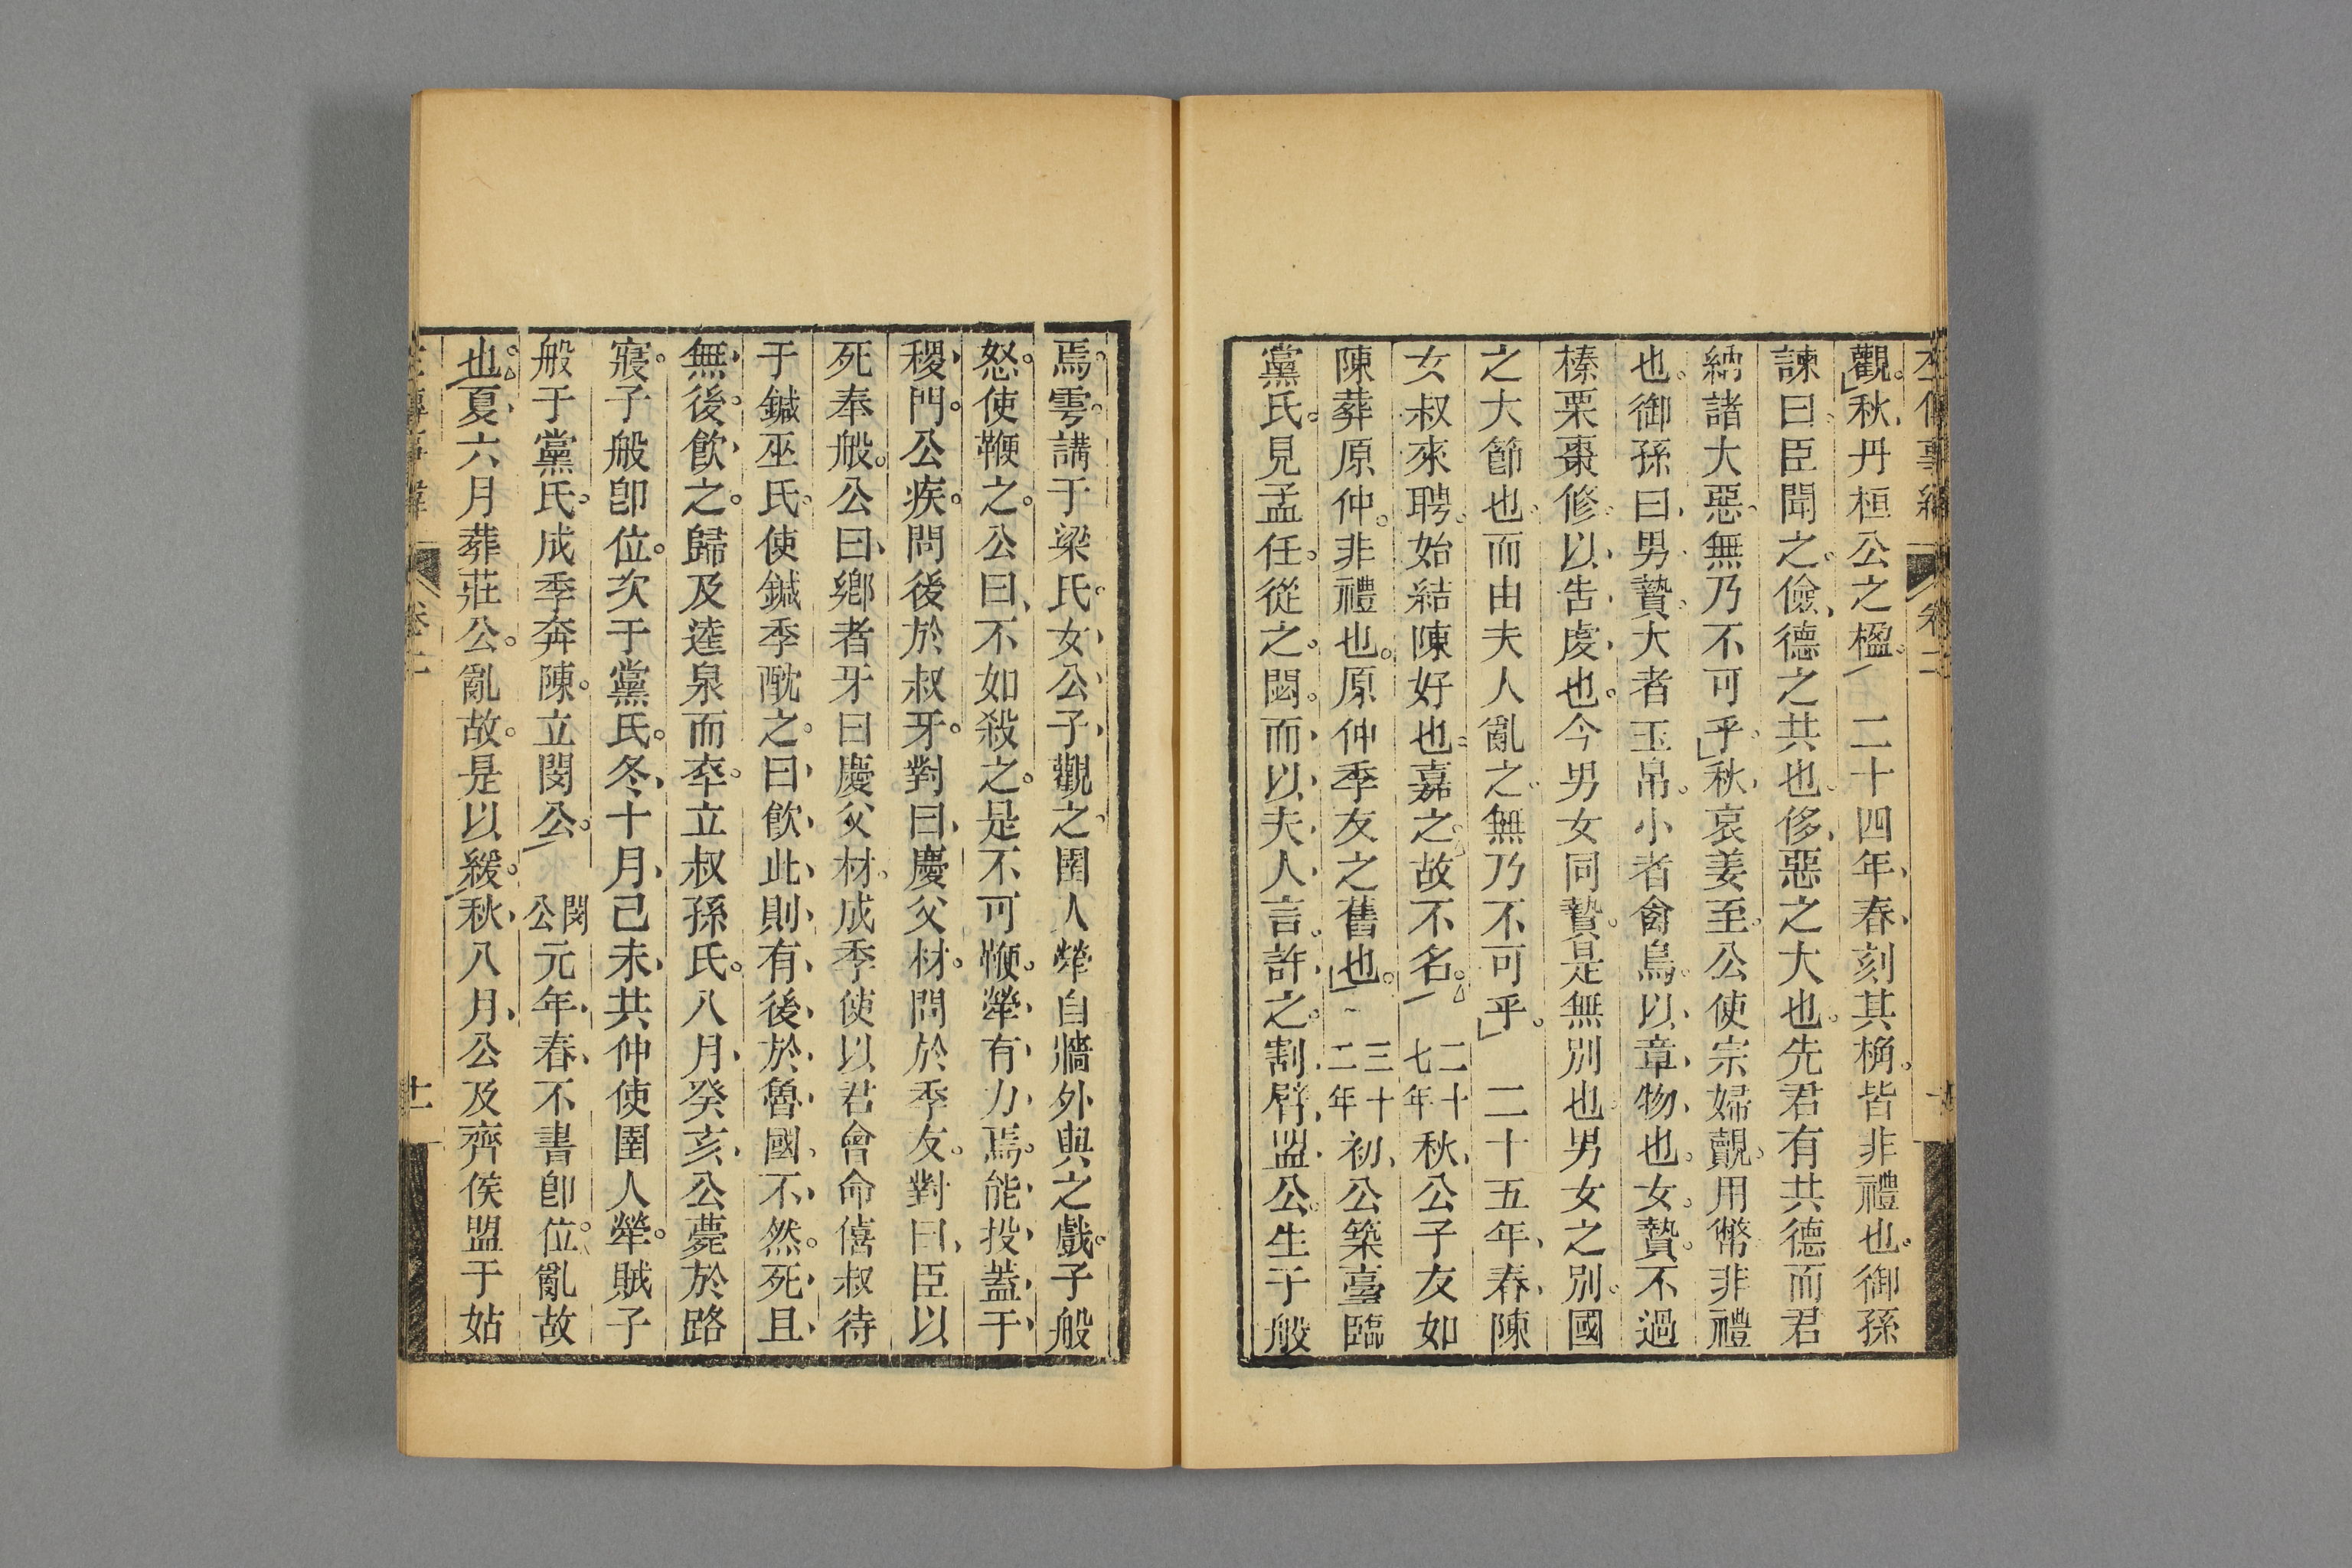 觀。秋、丹桓公之楹。 二十四年、春、刻其桷。皆非禮也。御孫
諫曰。臣聞之。儉、德之共也。侈、惡之大也。先君有共德而君
納諸大惡。無乃不可乎。秋、哀姜至。公使宗婦覿。用幣非禮
也。御孫曰、男贄。大者玉帛。小者禽鳥。以、章、物、也。女。贄。不過
榛栗棗修。以、告、虔、也。今男女同贄。是無別也。男女之別。國
之大節也。而由夫人亂之。無乃不可乎。 二十五年、春、陳
女叔來聘。始結陳好也。嘉之。故不名。 二十七年秋、公子友如
陳葬原仲。非禮也。原仲季友之舊也。 三十二年初、公築臺臨
黨氏。見孟任。從之。閟。而、以、夫、人、言。許、之。割、臂、盟、公。生子般
焉。雩。講于梁氏。女、公、子、觀之、圉人犖自牆外與之戲。子般
怒。使鞭之。公曰、不如殺之。是不可鞭。犖、有、力、焉。能、投、蓋、于、
稷、門。公疾。問後於叔牙。對曰、慶父材。問於季友。對曰、臣以
死奉般。公曰、鄉者牙曰慶父材。成季使以君命僖叔待
于鍼巫氏。使鍼季酖之。曰、飮、此、則、有、後、於、魯、國、不、然。死、且、
無、後。飮、之。歸及逵泉而卒。立叔孫氏。八月、癸亥、公薨於路
寢。子般卽位。次于黨氏。冬、十月、己未、共仲使圉人犖。賊子
般于黨氏。成季奔陳。立閔公。 閔公元年、春、不書卽位。亂故
也。夏、六月葬莊公。亂故。是以緩。秋、八月、公及齊侯盟于姑